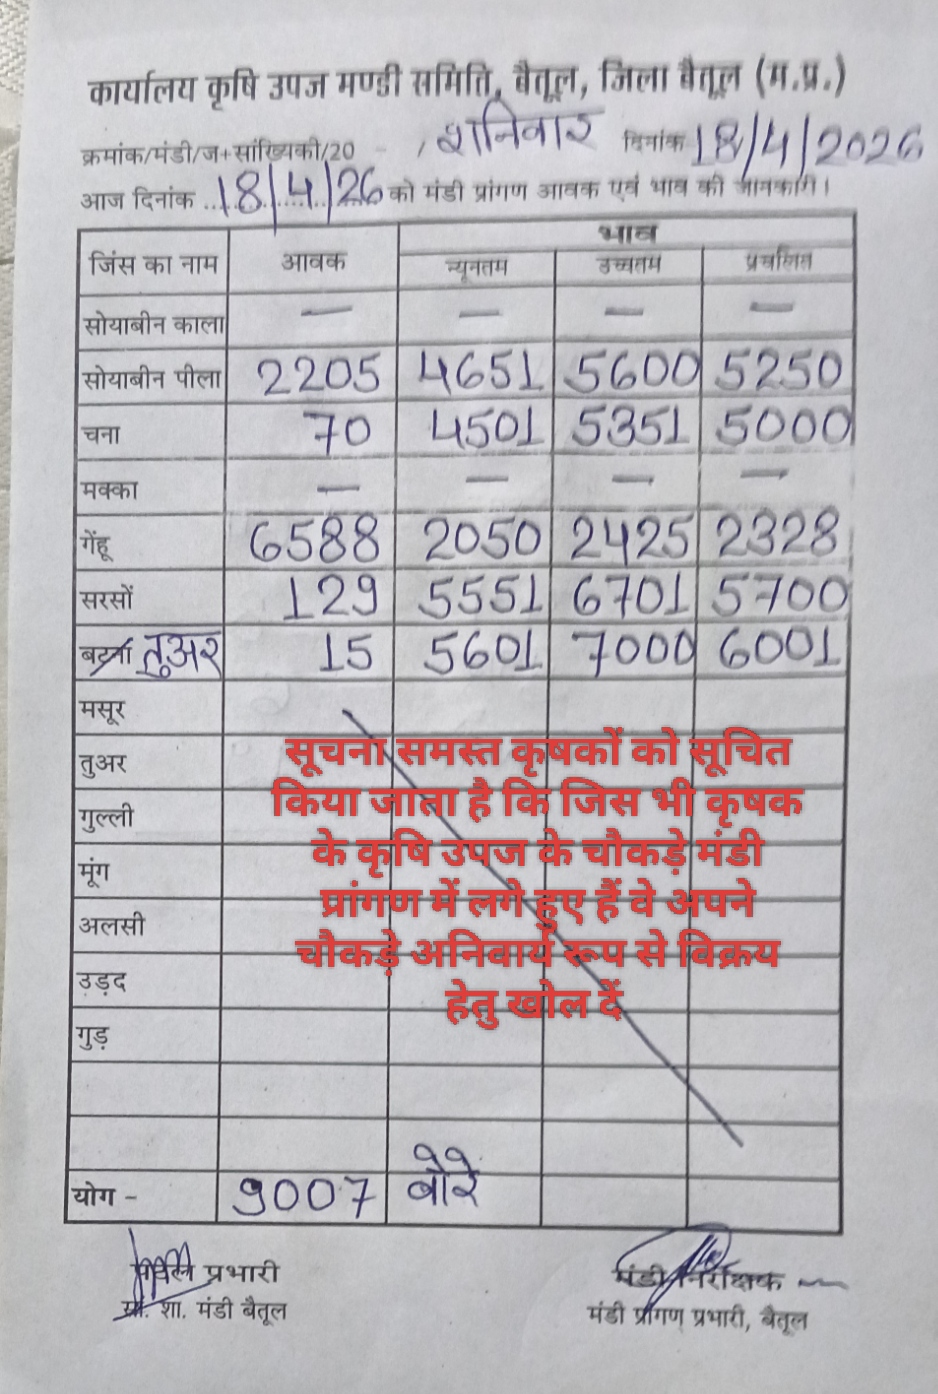 कार्यालय कृषि उपज मण्डी समिति, बैतूल, जिला बैतूल (म.प्र.)
क्रमांक/मंडी/ज+सांख्यिकी/20 - , शनिवार दिनांक 18/4/2026
आज दिनांक 18/4/26 को मंडी प्रांगण आवक एवं भाव की जानकारी।
जिंस का नाम आवक भाव
न्यूनतम उच्चतम प्रचलित
सोयाबीन काला — — — —
सोयाबीन पीला 2205 4651 5600 5250
चना 70 4501 5351 5000
मक्का — — — —
गेंहू 6588 2050 2425 2328
सरसों 129 5551 6701 5700
बटना तुअर 15 5601 7000 6001
मसूर
तुअर
गुल्ली
मूंग
अलसी
उड़द
गुड़
सूचना समस्त कृषकों को सूचित
किया जाता है कि जिस भी कृषक
के कृषि उपज के चौकड़े मंडी
प्रांगण में लगे हुए हैं वे अपने
चौकड़े अनिवार्य रूप से विक्रय
हेतु खोल दें
योग - 9007 बोरे
प्रभारी मंडी निरीक्षक
प्रां. शा. मंडी बैतूल मंडी प्रांगण प्रभारी, बैतूल